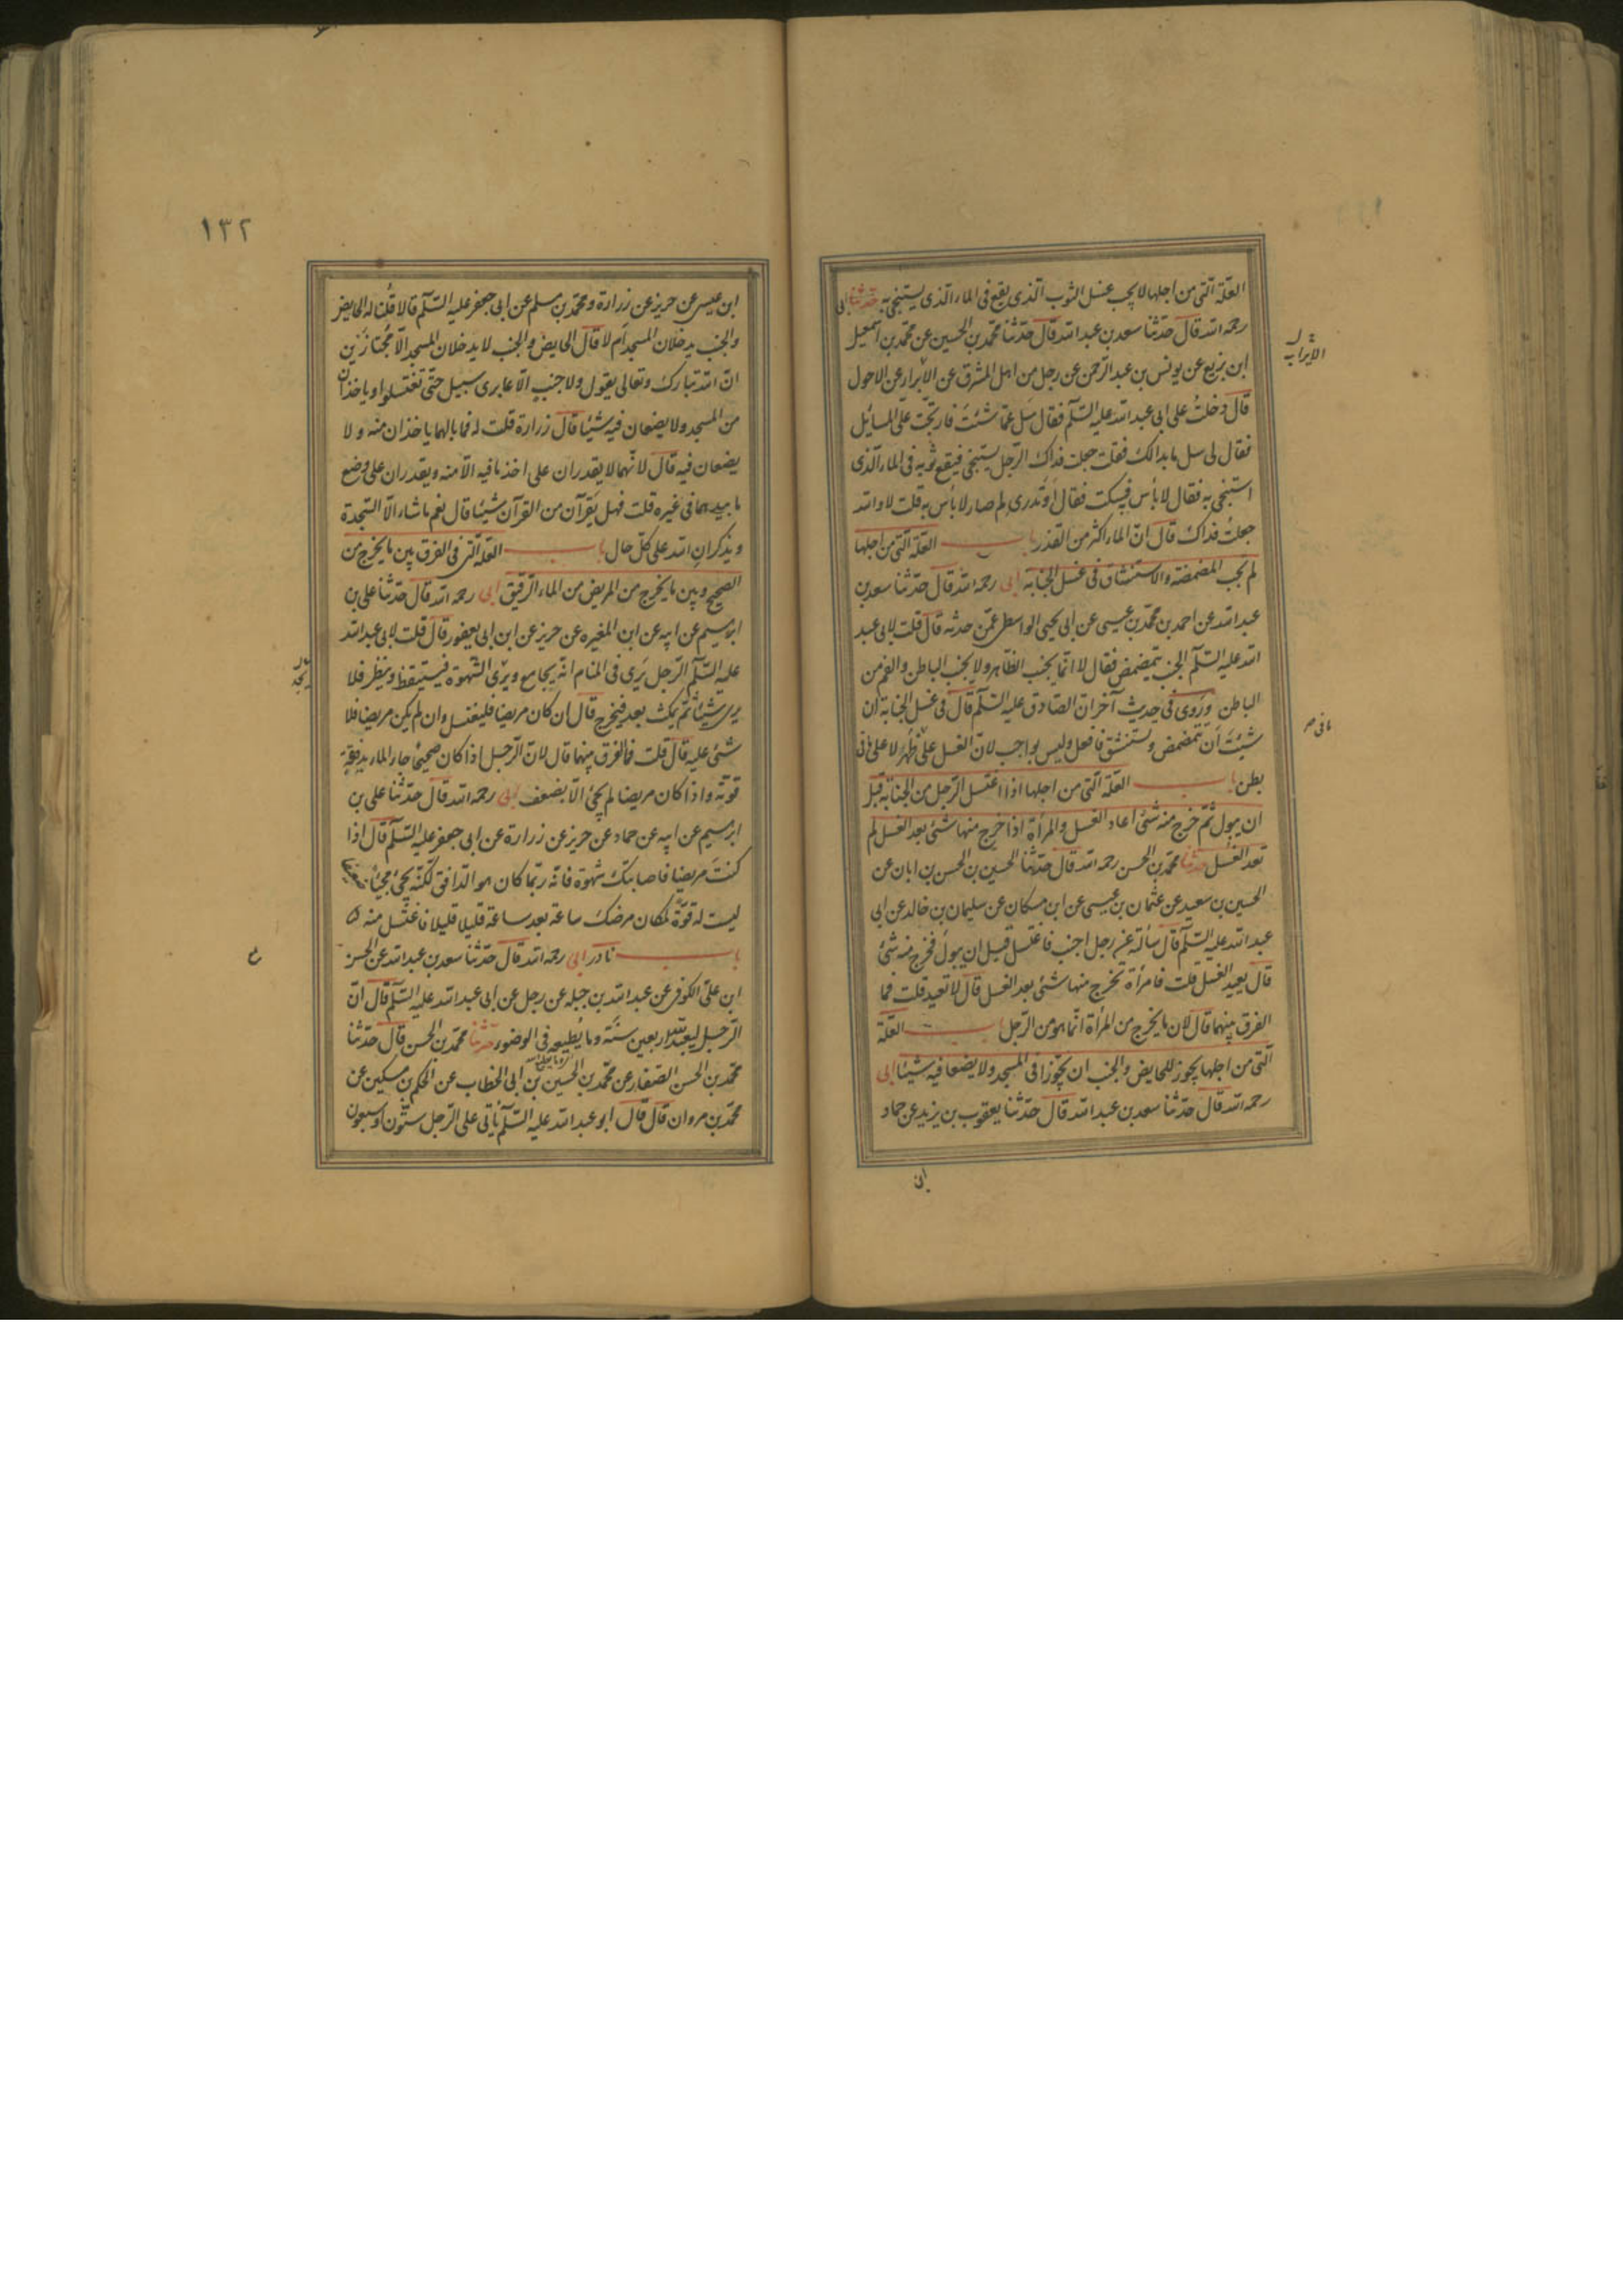 العلة التى من اجلها لا يجب غسل الثوب الذى يقع فى الماء الذى يستنجى به حدثنا ابى
رحمه الله قال حدثنا سعد بن عبد الله قال حدثنا محمد بن الحسين عن محمد بن اسمعيل
ابن بزيع عن يونس بن عبد الرحمن عن رجل من اهل المشرق عن الابرار عن الاحول
قال دخلت على ابى عبد الله عليه السلم فقال سل عما شئت فارتجت على المسايل
فقال لى سل ما بدالك فقلت جعلت فداك الرجل يستنجى فيقع ثوبه فى الماء الذى
استنجى به فقال لا بأس فسكت فقال اوتدرى لم صار لا بأس به قلت لا والله
جعلت فداك قال ان الماء اكثر من القذر باب العلة التى من اجلها
لم تجب المضمضة والاستنشاق فى غسل الجنابة ابى رحمه الله قال حدثنا سعد بن
عبد الله عن احمد بن محمد بن عيسى عن ابى يحيى الواسطى عمن حدثه قال قلت لابى عبد
الله عليه السلم الجنب يتمضمض فقال لا انما يجنب الظاهر ولا يجنب الباطن والفم من
الباطن وروى فى حديث آخر ان الصادق عليه السلم قال فى غسل الجنابة ان
شئت ان تتمضمض وتستنشق فافعل وليس بواجب لان الغسل على ما ظهر لا على ما
بطن باب العلة التى من اجلها اذا اغتسل الرجل من الجنابة قبل
ان يبول ثم خرج منه شئ اعاد الغسل والمرأة اذا خرج منها شئ بعد الغسل لم
تعد الغسل حدثنا محمد بن الحسن رحمه الله قال حدثنا الحسين بن الحسن بن ابان عن
الحسين بن سعيد عن عثمان بن عيسى عن ابن مسكان عن سليمان بن خالد عن ابى
عبد الله عليه السلم قال سألته عن رجل اجنب فاغتسل قبل ان يبول فخرج منه شئ
قال يعيد الغسل قلت فامرأة يخرج منها شئ بعد الغسل قال لا تعيد قلت فما
الفرق بينهما قال لان ما يخرج من المرأة انما هو من الرجل باب العلة
التى من اجلها يجوز للحايض والجنب ان يجوزا فى المسجد ولا يضعا فيه شيئا ابى
رحمه الله قال حدثنا سعد بن عبد الله قال حدثنا يعقوب بن يزيد عن حماد
ابن
١٣٢
ابن عيسى عن حريز عن زرارة ومحمد بن مسلم عن ابى جعفر عليه السلم قالا قلنا له الحايض
والجنب يدخلان المسجد ام لا قال الحايض والجنب لا يدخلان المسجد الا مجتازين
ان الله تبارك وتعالى يقول ولا جنبا الا عابرى سبيل حتى تغتسلوا وياخذان
من المسجد ولا يضعان فيه شيئا قال زرارة قلت له فما بالهما ياخذان منه ولا
يضعان فيه قال لانهما لا يقدران على اخذ ما فيه الا منه ويقدران على وضع
ما بيدهما فى غيره قلت فهل يقرآن من القرآن شيئا قال نعم ما شاء الا السجدة
ويذكران الله على كل حال باب العلة التى فى الفرق بين ما يخرج من
الصحيح وبين ما يخرج من المريض من الماء الرقيق ابى رحمه الله قال حدثنا على بن
ابرهيم عن ابيه عن ابن المغيره عن حريز عن ابن ابى يعفور قال قلت لابى عبد الله
عليه السلم الرجل يرى فى المنام انه يجامع ويرى الشهوة فيستيقظ وينظر فلا
يرى شيئا ثم يمكث بعد فيخرج قال ان كان مريضا فليغتسل وان لم يكن مريضا فلا
شئ عليه قال قلت فما الفرق بينهما قال لان الرجل اذا كان صحيحا جاء الماء بدفعة
قوته واذا كان مريضا لم يجئ الا بضعف ابى رحمه الله قال حدثنا على بن
ابرهيم عن ابيه عن حماد عن حريز عن زرارة عن ابى جعفر عليه السلم قال اذا
كنت مريضا فاصابتك شهوة فانه ربما كان هو الدافق لكنه يجئ مجيئا ضعيفا
ليست له قوة لمكان مرضك ساعة بعد ساعة قليلا قليلا فاغتسل منه
باب نادر ابى رحمه الله قال حدثنا سعد بن عبد الله عن الحسن
ابن على الكوفى عن عبد الله بن جبله عن رجل عن ابى عبد الله عليه السلم قال ان
الرجل ليعبد الله اربعين سنة وما يطيعه فى الوضوء حدثنا محمد بن الحسن قال حدثنا
محمد بن الحسن الصفار عن محمد بن الحسين بن ابى الخطاب عن الحكم بن مسكين عن
محمد بن مروان قال قال ابو عبد الله عليه السلم يأتى على الرجل ستون او سبعون